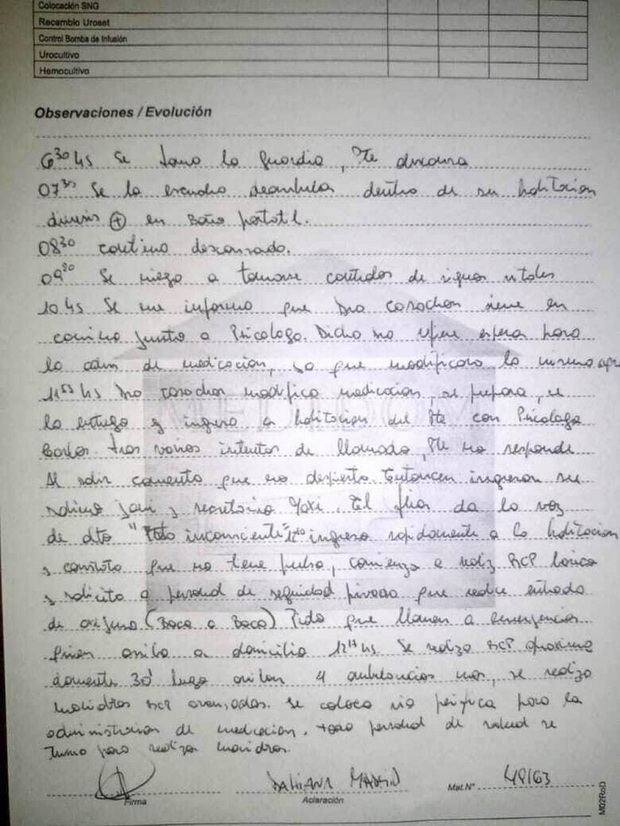 Colocación SNG
Recambio Uroset
Control Bomba de Infusión
Urocultivo
Hemocultivo
Observaciones / Evolución
6³⁰ hs Se toma la guardia, Pte descansa
07³⁰ Se lo escucha deambular dentro de su habitación
diuresis (+) en Baño portatil.
08³⁰ continua descansado.
09²⁰ Se niega a tomarse controles de signos vitales
10 hs Se me informa que Dra cosachov viene en
camino junto a Psicologo. Dicha me espera para
la adm de medicacion, ya que modificara la misma
11⁵³ hs Dra cosachov modifica medicacion, se prepara, se
la entrega y ingresa a habitacion del Pte con Psicologo
tras varios intentos de llamado, Pte no responde
Al salir comenta que no despierta. Entonces ingresan su
sobrino y secretario El da la voz
de alto "Esta inconsciente" ingreso rapidamente a la habitacion
y constato que no tiene pulso, comienzo a realizar RCP basico
y solicito a personal de seguridad privada que realice entrada
de oxigeno (Boca a Boca) Pido que llamen a emergencias
quien arriba a domicilio 12 hs Se realiza RCP aproxima
damente 30' luego arriban 4 ambulancias mas, se realiza
maniobras RCP avanzadas. Se coloca via periferica para la
administracion de medicacion. todo personal de salud se
turno para realizar maniobras.
Firma
DAHIANA MADRID
Aclaración
Mat.N° 48163
M02RoD
MEDIDOM